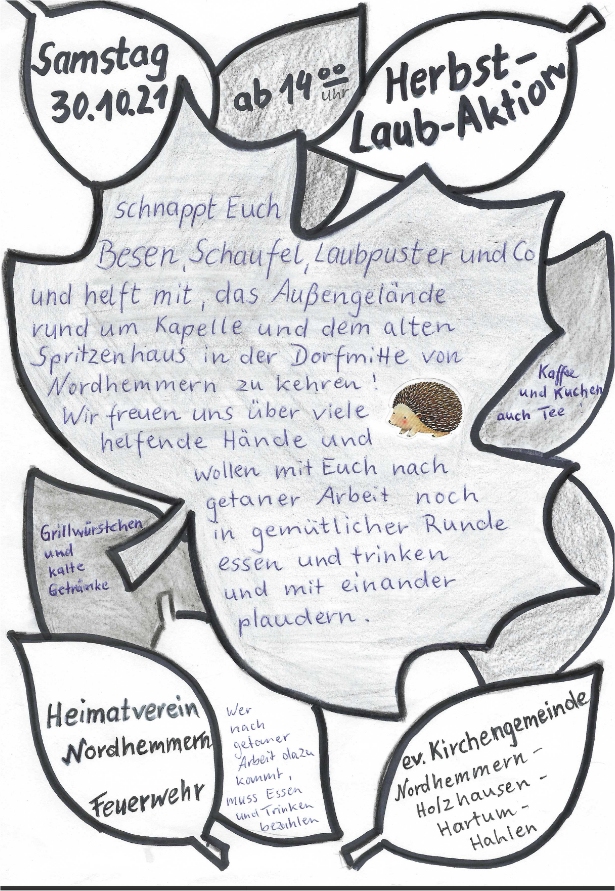 Samstag
30.10.21
ab 14 00
Uhr
Herbst-
Laub-Aktion
schnappt Euch
Besen, Schaufel, Laubpuster und Co
und helft mit, das Außengelände
rund um Kapelle und dem alten
Spritzenhaus in der Dorfmitte von
Nordhemmern zu kehren!
Wir freuen uns über viele
helfende Hände und
wollen mit Euch nach
getaner Arbeit noch
in gemütlicher Runde
essen und trinken
und mit einander
plaudern.
Kaffee
und Kuchen
auch Tee
Grillwürstchen
und
kalte
Getränke
Heimatverein
Nordhemmern
Feuerwehr
Wer
nach
getaner
Arbeit dazu
kommt,
muss Essen
und Trinken
bezahlen
ev. Kirchengemeinde
Nordhemmern-
Holzhausen-
Hartum-
Hahlen